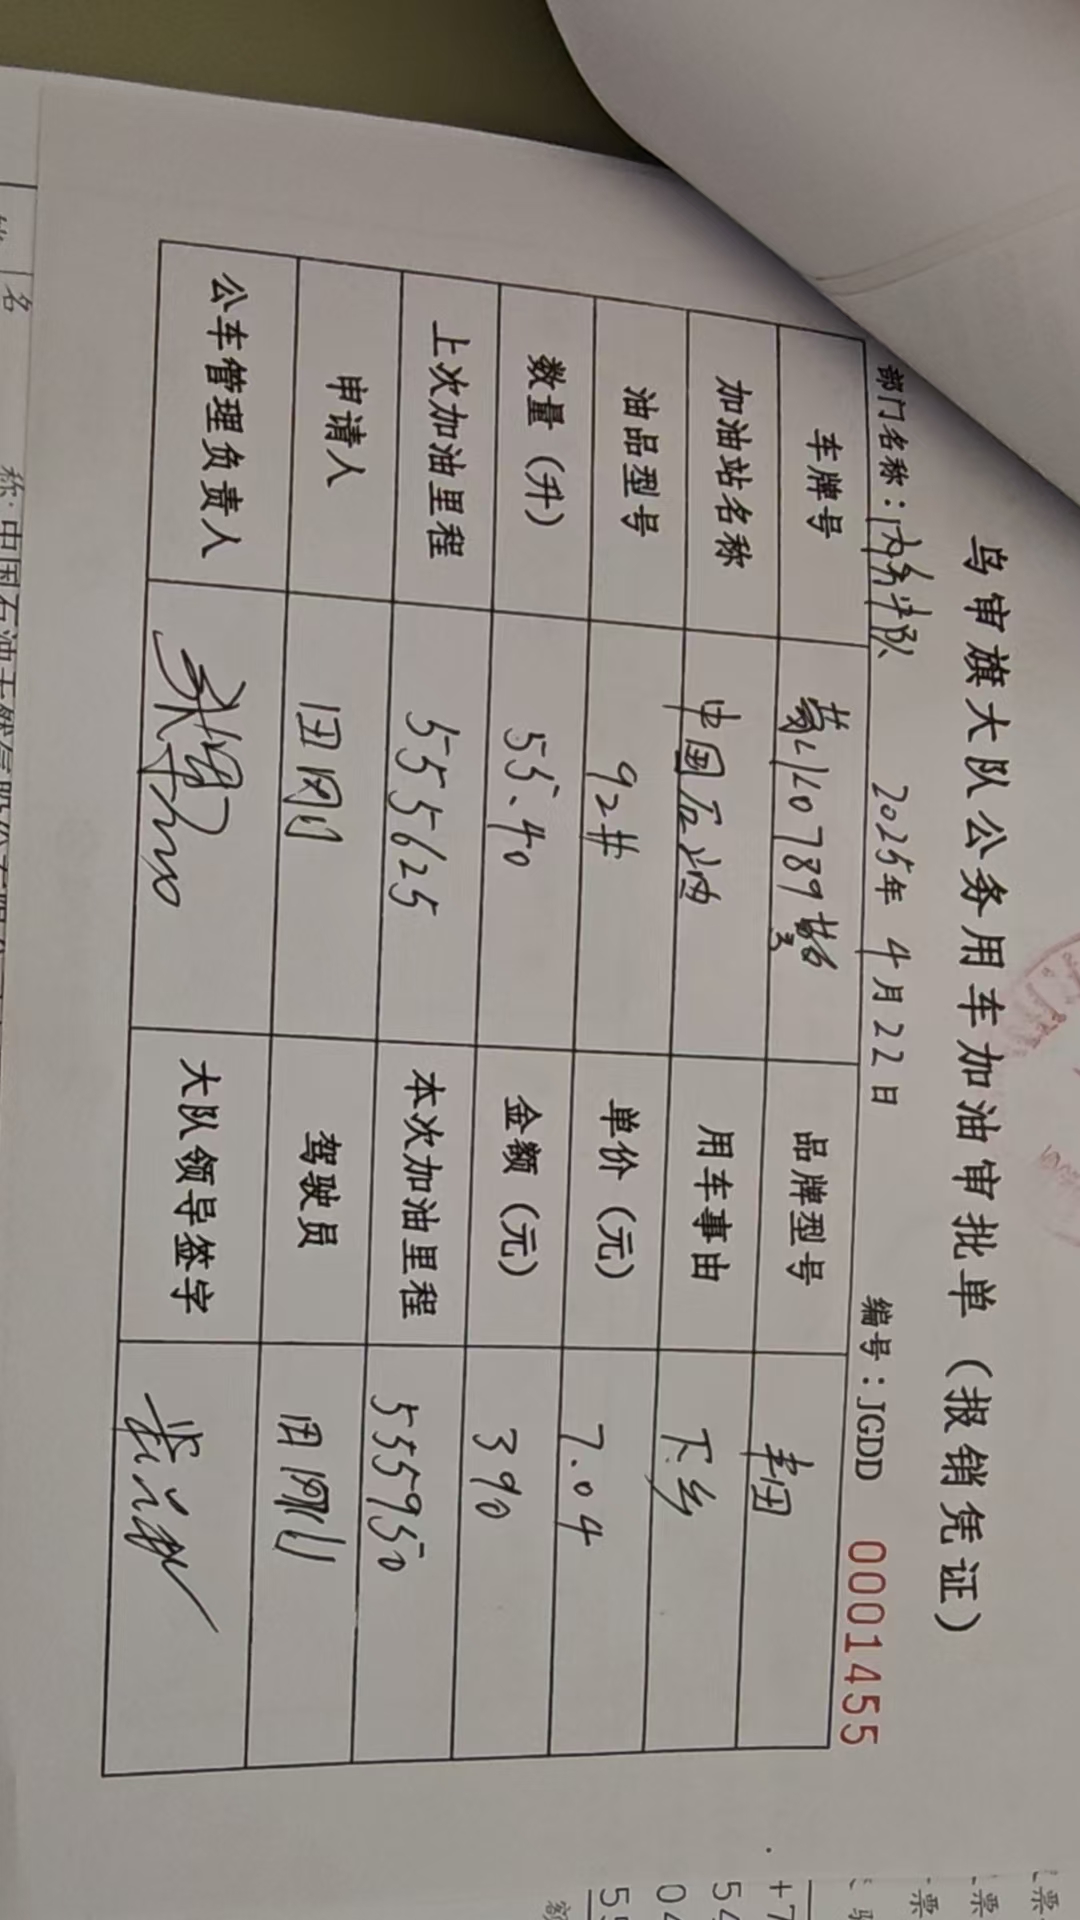 乌审旗大队公务用车加油审批单（报销凭证）
部门名称：内务中队 2025年 4月22日 编号：JGDD 0001455
车牌号 蒙L10789警 品牌型号 丰田
加油站名称 中国石油 用车事由 下乡
油品型号 92# 单价（元） 7.04
数量（升） 55.40 金额（元） 390
上次加油里程 555625 本次加油里程 555950
申请人 田刚 驾驶员 田刚
公车管理负责人 大队领导签字
名
称：中国石油天然气股份有限公